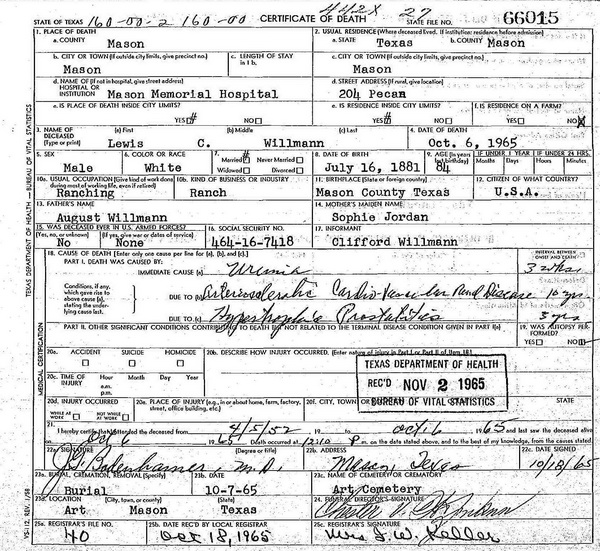 442X 27
STATE OF TEXAS 160-00-2 160-00 CERTIFICATE OF DEATH STATE FILE NO. 66015
1. PLACE OF DEATH 2. USUAL RESIDENCE (Where deceased lived. If institution: residence before admission)
a. COUNTY Mason a. STATE Texas b. COUNTY Mason
b. CITY OR TOWN (If outside city limits, give precinct no.) c. LENGTH OF STAY in 1b. c. CITY OR TOWN (If outside city limits, give precinct no.)
Mason Mason
d. NAME OF (If not in hospital, give street address) HOSPITAL OR INSTITUTION d. STREET ADDRESS (If rural, give location)
Mason Memorial Hospital 204 Pecan
e. IS PLACE OF DEATH INSIDE CITY LIMITS? e. IS RESIDENCE INSIDE CITY LIMITS? f. IS RESIDENCE ON A FARM?
YES NO YES NO YES NO
3. NAME OF DECEASED (Type or print) (a) First (b) Middle (c) Last 4. DATE OF DEATH
Lewis C. Willmann Oct. 6, 1965
5. SEX 6. COLOR OR RACE 7. Married Never Married Widowed Divorced 8. DATE OF BIRTH 9. AGE IF UNDER 1 YEAR IF UNDER 24 HRS.
Male White July 16, 1881 84 Months Days Hours Min.
10a. USUAL OCCUPATION (Give kind of work done during most of working life, even if retired) 10b. KIND OF BUSINESS OR INDUSTRY 11. BIRTHPLACE (State or foreign country) 12. CITIZEN OF WHAT COUNTRY?
Ranching Ranch Mason County Texas U.S.A.
13. FATHER'S NAME 14. MOTHER'S MAIDEN NAME
August Willmann Sophie Jordan
15. WAS DECEASED EVER IN U.S. ARMED FORCES? 16. SOCIAL SECURITY NO. 17. INFORMANT
(Yes, no, or unknown) (If yes, give war or dates of service)
No None 464-16-7418 Clifford Willmann
18. CAUSE OF DEATH [Enter only one cause per line for (a), (b), and (c).] INTERVAL BETWEEN ONSET AND DEATH
PART I. DEATH WAS CAUSED BY:
IMMEDIATE CAUSE (a) Uremia 3 wks
Conditions, if any, which gave rise to above cause (a), stating the underlying cause last.
DUE TO (b) Arteriosclerotic Cardio-Vascular Renal Disease 10 yrs.
DUE TO (c) Hypertrophic Prostatitis 3 yrs
PART II. OTHER SIGNIFICANT CONDITIONS CONTRIBUTING TO DEATH BUT NOT RELATED TO THE TERMINAL DISEASE CONDITION GIVEN IN PART I(a) 19. WAS AUTOPSY PERFORMED?
YES NO
20a. ACCIDENT SUICIDE HOMICIDE 20b. DESCRIBE HOW INJURY OCCURRED. (Enter nature of injury in Part I or Part II of item 18.)
20c. TIME OF INJURY Hour Month Day Year
a.m.
p.m.
TEXAS DEPARTMENT OF HEALTH
REC'D NOV 2 1965
BUREAU OF VITAL STATISTICS
20d. INJURY OCCURRED 20e. PLACE OF INJURY (e.g., in or about home, farm, factory, street, office building, etc.) 20f. CITY, TOWN
WHILE AT WORK NOT WHILE AT WORK
21. I hereby certify that I attended the deceased from 4/5/52 to Oct 6 1965 and last saw the deceased alive
on Oct 6 1965 Death occurred at 12:10 P. m. on the date stated above, and to the best of my knowledge, from the causes stated.
22a. SIGNATURE (Degree or title) 22b. ADDRESS 22c. DATE SIGNED
J.G. Bodenhamer, M.D. Mason, Texas 10/18/65
23a. BURIAL, CREMATION, REMOVAL (Specify) 23b. DATE 23c. NAME OF CEMETERY OR CREMATORY
Burial 10-7-65 Art Cemetery
23d. LOCATION (City, town, or county) (State) 24. FUNERAL DIRECTOR'S SIGNATURE
Art Mason Texas
25a. REGISTRAR'S FILE NO. 25b. DATE REC'D BY LOCAL REGISTRAR 25c. REGISTRAR'S SIGNATURE
40 Oct 18, 1965 Mrs J. W. Keller
TEXAS DEPARTMENT OF HEALTH — BUREAU OF VITAL STATISTICS
MEDICAL CERTIFICATION